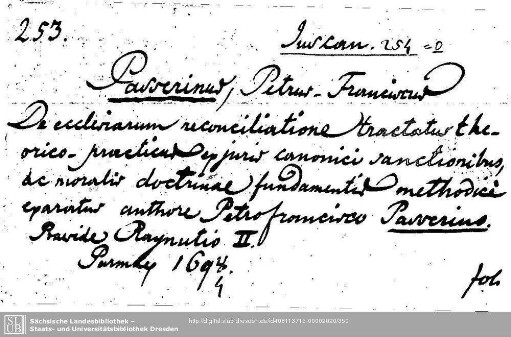 253.
Jus can. 254
Passerinus, Petrus-Franciscus
De ecclesiarum reconciliatione tractatus the-
orico-practicus ex juris canonici sanctionibus,
ac moralis doctrinae fundamentis methodice
exaratus authore Petrofrancisco Passerino.
Raynutio II.
Parmae
fol.
Sächsische Landesbibliothek –
Staats- und Universitätsbibliothek Dresden